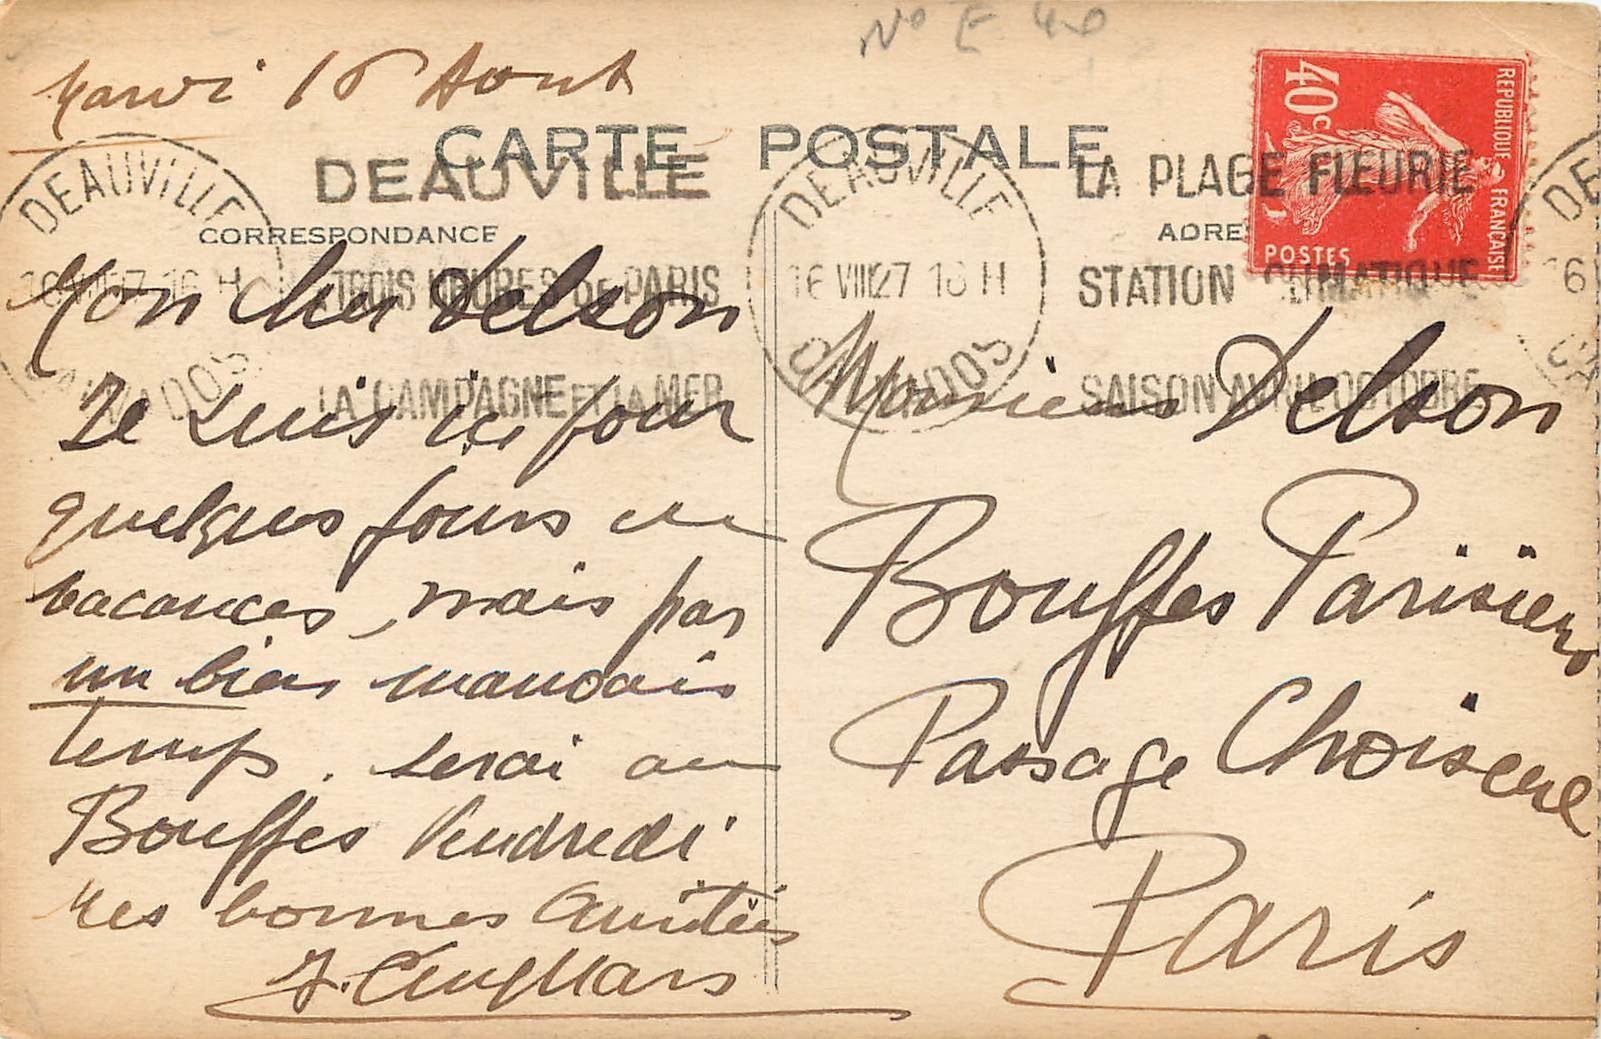 N° E 40
Mardi 16 Aout
CARTE POSTALE
CORRESPONDANCE
ADRE
REPUBLIQUE FRANÇAISE
40c
POSTES
DEAUVILLE
16 VIII 27 16 H
CALVADOS
DEAUVILLE
A TROIS HEURES DE PARIS
LA CAMPAGNE ET LA MER
DEAUVILLE
16 VIII 27 16 H
CALVADOS
LA PLAGE FLEURIE
STATION CLIMATIQUE
SAISON AVRIL OCTOBRE
DE
6
CA
Mon cher Delson
Je suis ici pour
quelques jours en
vacances, mais par
un bien mauvais
temps. serai aux
Bouffes Vendredi
mes bonnes Amitiés
Monsieur Delson
Bouffes Parisiens
Passage Choiseul
Paris